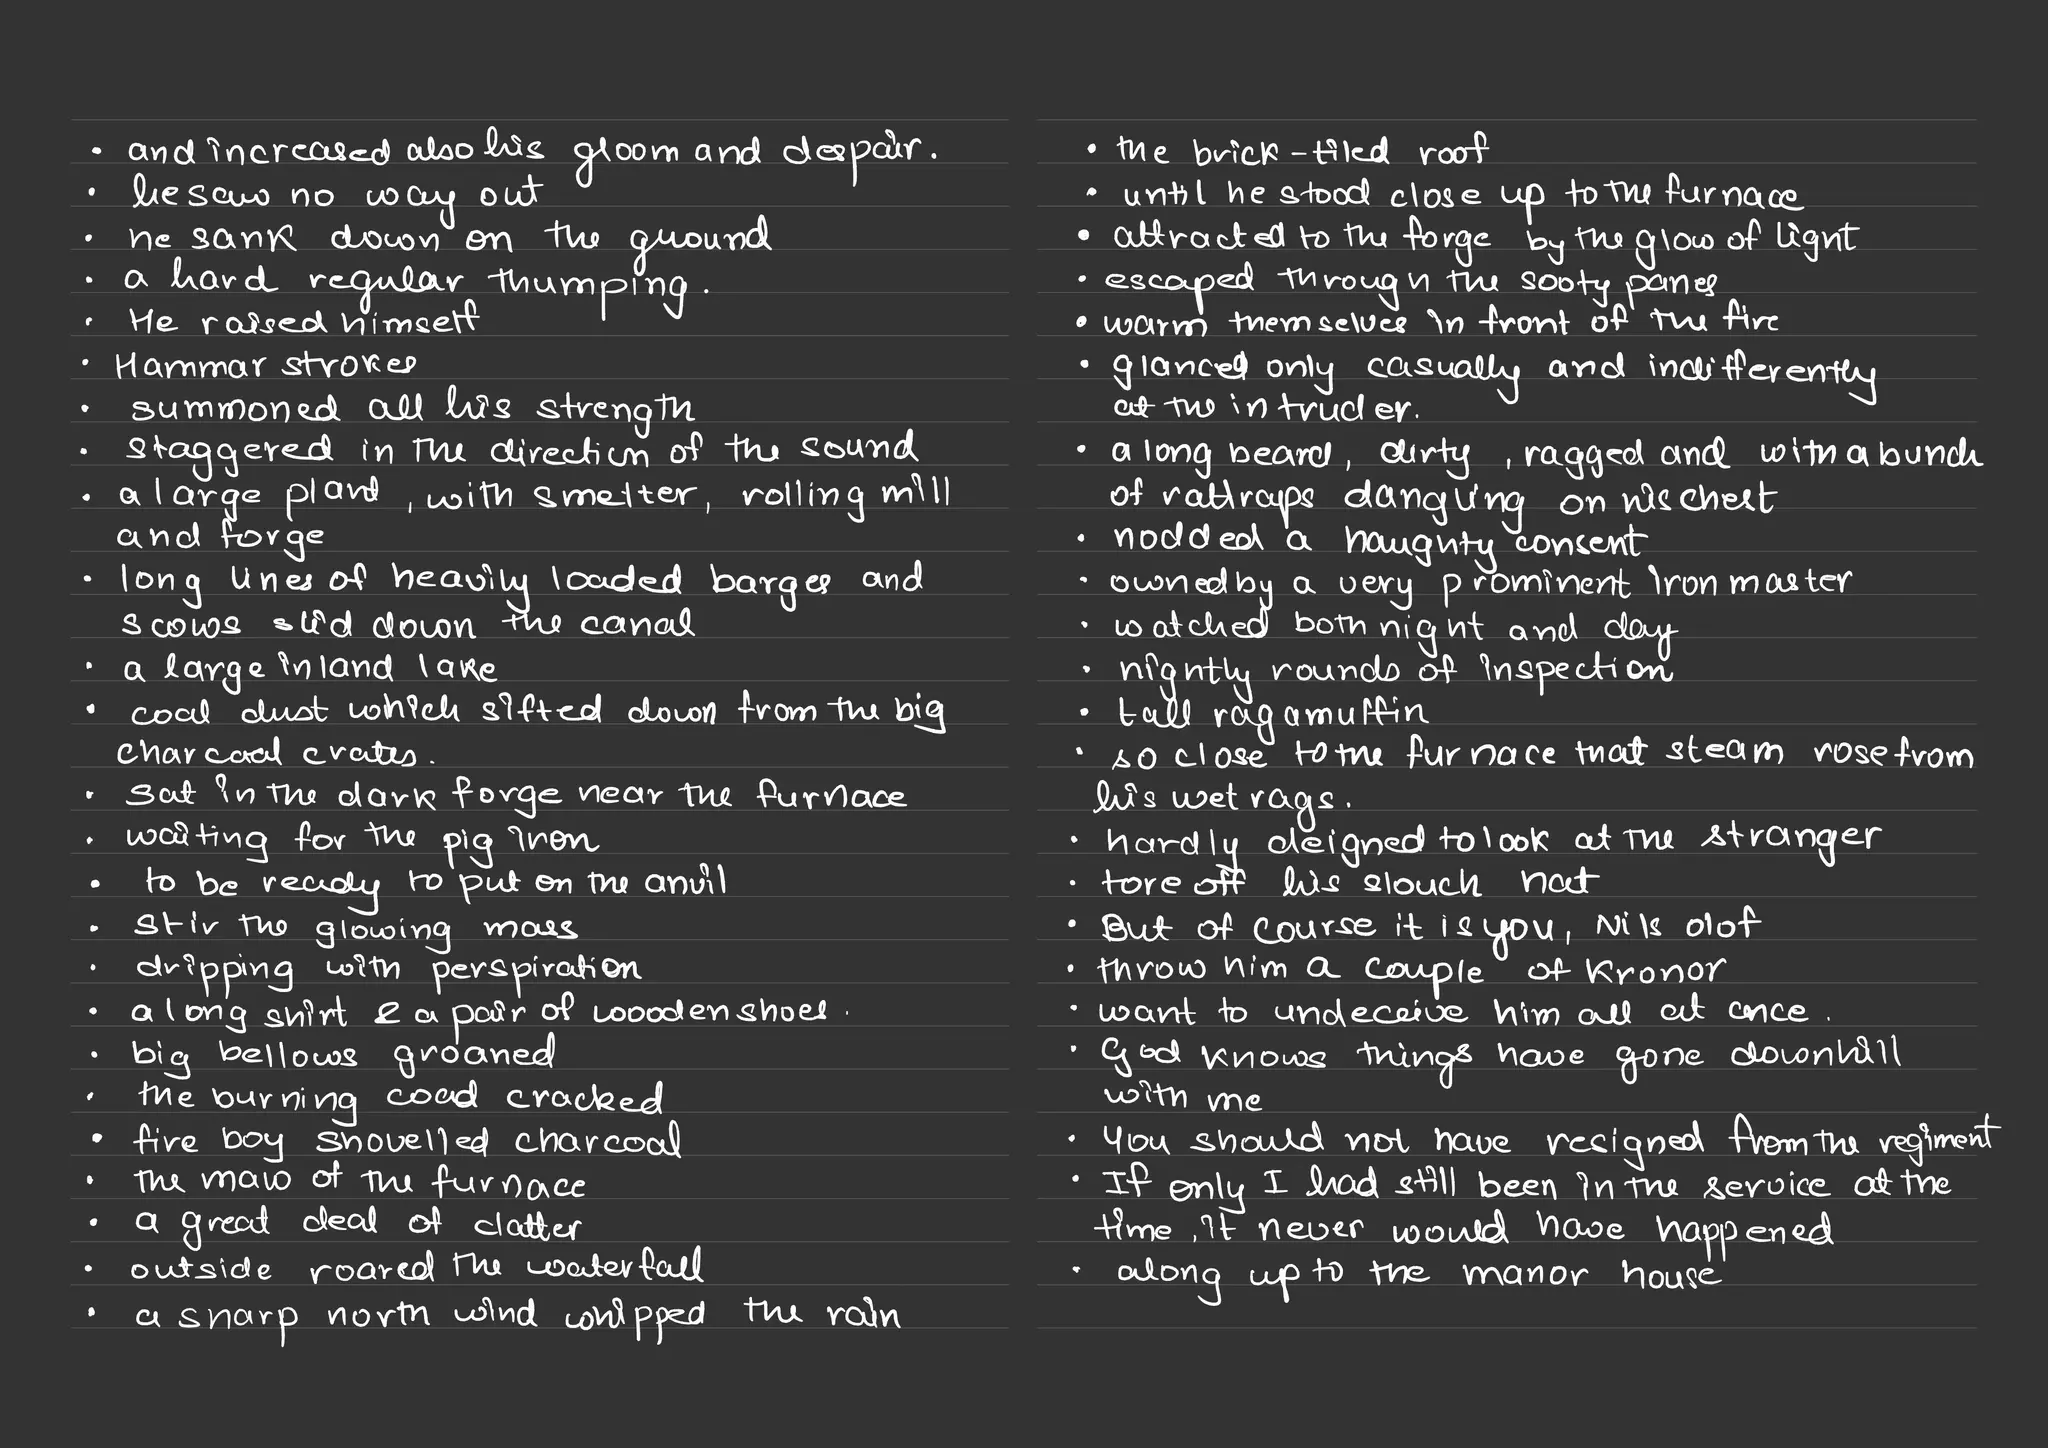 • and increased also his gloom and despair.
• he saw no way out
• he sank down on the ground
• a hard regular thumping.
• He raised himself
• Hammar strokes
• summoned all his strength
• staggered in the direction of the sound
• a large plant, with smelter, rolling mill
and forge
• long lines of heavily loaded barges and
scows slid down the canal
• a large inland lake
• coal dust which sifted down from the big
charcoal crates.
• sat in the dark forge near the furnace
• waiting for the pig iron
• to be ready to put on the anvil
• stir the glowing mass
• dripping with perspiration
• a long shirt & a pair of wooden shoes.
• big bellows groaned
• the burning coal cracked
• fire boy shovelled charcoal
• the maw of the furnace
• a great deal of clatter
• outside roared the waterfall
• a sharp north wind whipped the rain
• the brick-tiled roof
• until he stood close up to the furnace
• attracted to the forge by the glow of light
• escaped through the sooty panes
• warm themselves in front of the fire
• glanced only casually and indifferently
at the intruder.
• a long beard, dirty, ragged and with a bunch
of rattraps dangling on his chest
• nodded a haughty consent
• owned by a very prominent iron master
• watched both night and day
• nightly rounds of inspection
• tall ragamuffin
• so close to the furnace that steam rose from
his wet rags.
• hardly deigned to look at the stranger
• tore off his slouch hat
• But of course it is you, Nils Olof
• throw him a couple of Kronor
• want to undeceive him all at once.
• God knows things have gone downhill
with me
• You should not have resigned from the regiment
• If only I had still been in the service at the
time, it never would have happened
• along up to the manor house